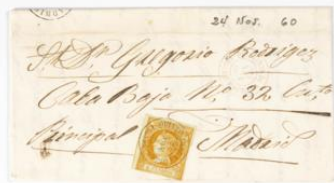 24 Nov. 60
Sr. Dn. Gregorio Rodrigez
Caba Baja No. 32 Cuto
Principal Madrid